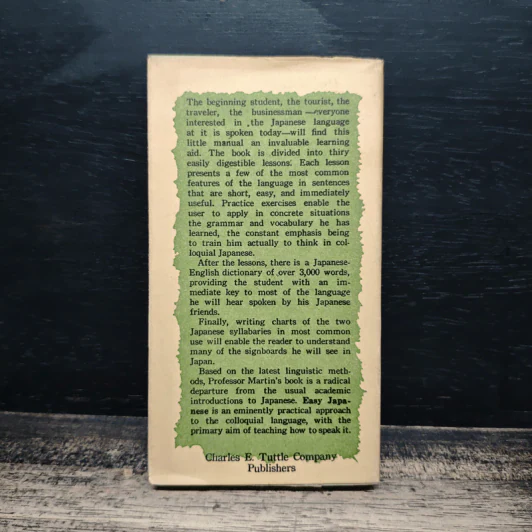 The beginning student, the tourist, the
traveler, the businessman—everyone
interested in the Japanese language
at it is spoken today—will find this
little manual an invaluable learning
aid. The book is divided into thiry
easily digestible lessons. Each lesson
presents a few of the most common
features of the language in sentences
that are short, easy, and immediately
useful. Practice exercises enable the
user to apply in concrete situations
the grammar and vocabulary he has
learned, the constant emphasis being
to train him actually to think in col-
loquial Japanese.
After the lessons, there is a Japanese-
English dictionary of over 3,000 words,
providing the student with an im-
mediate key to most of the language
he will hear spoken by his Japanese
friends.
Finally, writing charts of the two
Japanese syllabaries in most common
use will enable the reader to understand
many of the signboards he will see in
Japan.
Based on the latest linguistic meth-
ods, Professor Martin's book is a radical
departure from the usual academic
introductions to Japanese. Easy Japa-
nese is an eminently practical approach
to the colloquial language, with the
primary aim of teaching how to speak it.
Charles E. Tuttle Company
Publishers